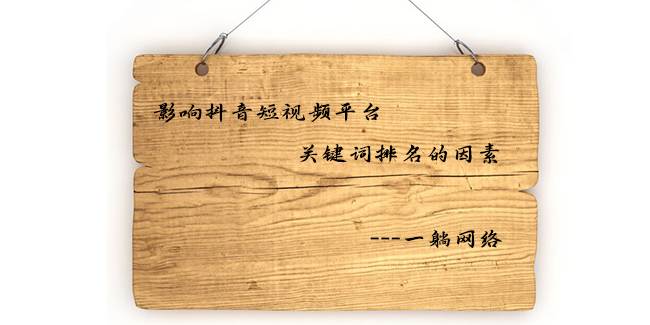 影响抖音短视频平台
关键词排名的因素
---一躺网络